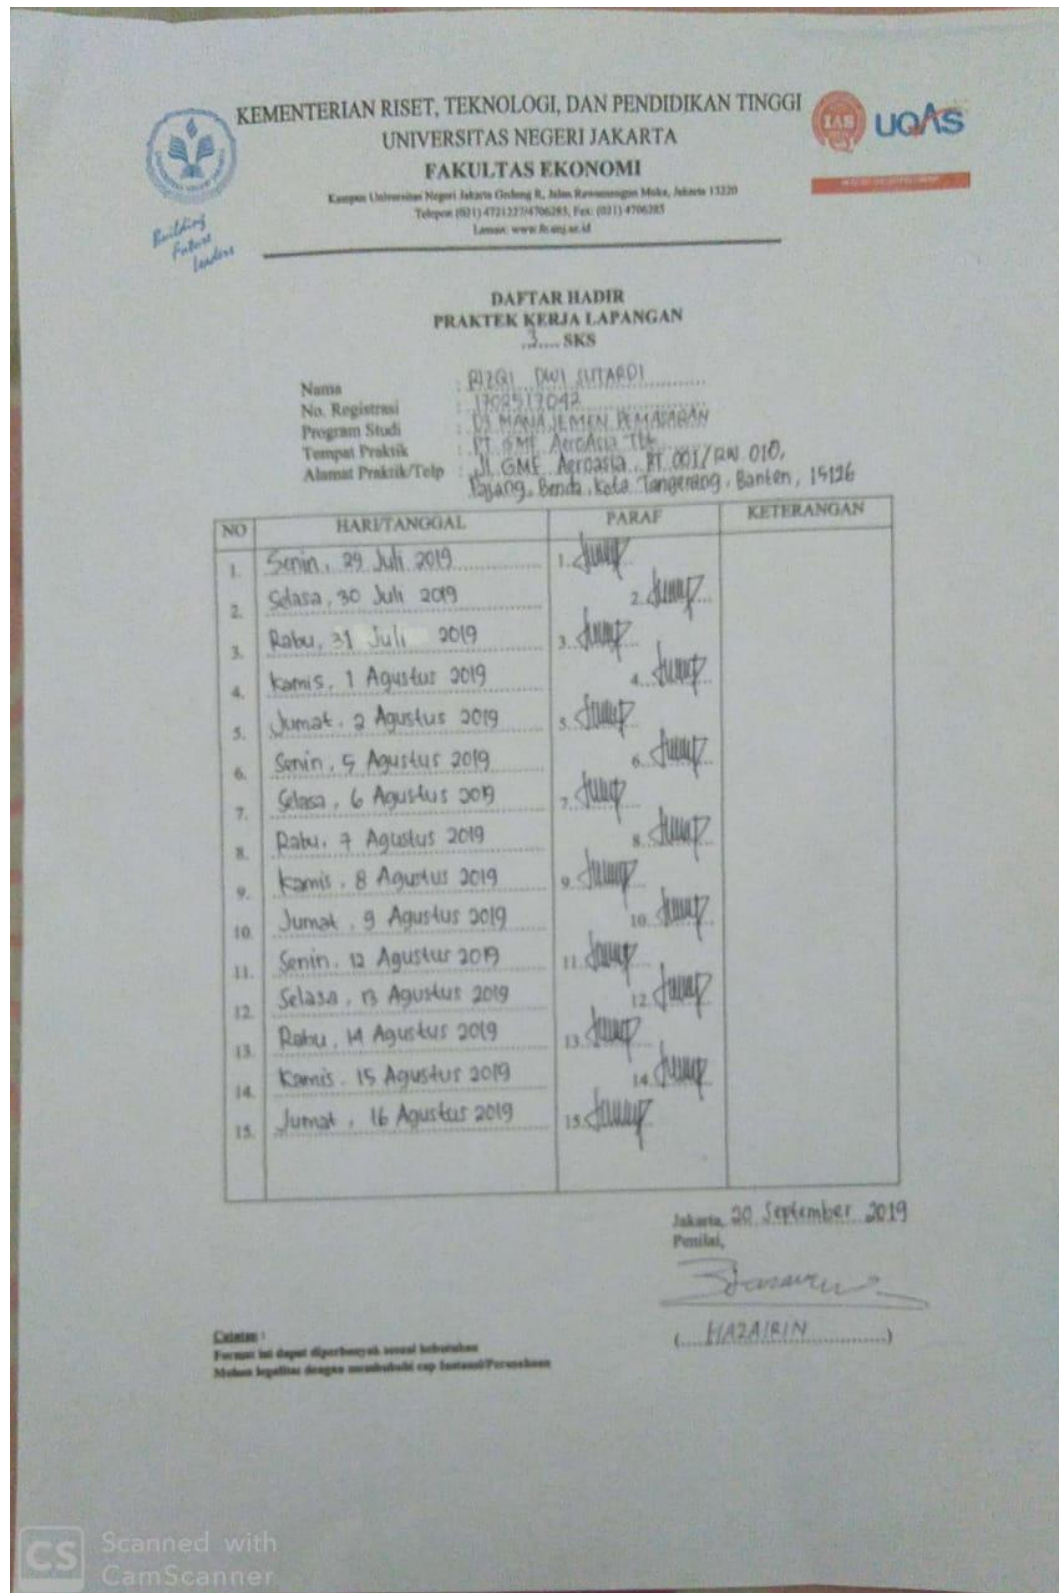 KEMENTERIAN RISET, TEKNOLOGI, DAN PENDIDIKAN TINGGI
UNIVERSITAS NEGERI JAKARTA
FAKULTAS EKONOMI
Kampus Universitas Negeri Jakarta Gedung R, Jalan Rawamangun Muka, Jakarta 13220
Telepon (021) 4721227/4706285, Fax: (021) 4706285
Laman: www.fe.unj.ac.id
Building
Future
Leaders
IAS
UQAS
DAFTAR HADIR
PRAKTEK KERJA LAPANGAN
3 SKS
Nama : RIZQI DWI SUTARDI
No. Registrasi : 1702517042
Program Studi : D3 MANAJEMEN PEMASARAN
Tempat Praktik : PT GMF AeroAsia Tbk
Alamat Praktik/Telp : Jl. GMF Aeroasia, RT 001/RW 010,
Pajang, Benda, Kota Tangerang, Banten, 15126
NO HARI/TANGGAL PARAF KETERANGAN
1. Senin, 29 Juli 2019 1.
2. Selasa, 30 Juli 2019 2.
3. Rabu, 31 Juli 2019 3.
4. Kamis, 1 Agustus 2019 4.
5. Jumat, 2 Agustus 2019 5.
6. Senin, 5 Agustus 2019 6.
7. Selasa, 6 Agustus 2019 7.
8. Rabu, 7 Agustus 2019 8.
9. Kamis, 8 Agustus 2019 9.
10. Jumat, 9 Agustus 2019 10.
11. Senin, 12 Agustus 2019 11.
12. Selasa, 13 Agustus 2019 12.
13. Rabu, 14 Agustus 2019 13.
14. Kamis, 15 Agustus 2019 14.
15. Jumat, 16 Agustus 2019 15.
Jakarta, 20 September 2019
Penilai,
( HAZAIRIN )
Catatan :
Format ini dapat diperbanyak sesuai kebutuhan
Mohon legalitas dengan membubuhi cap Instansi/Perusahaan
CS Scanned with
CamScanner